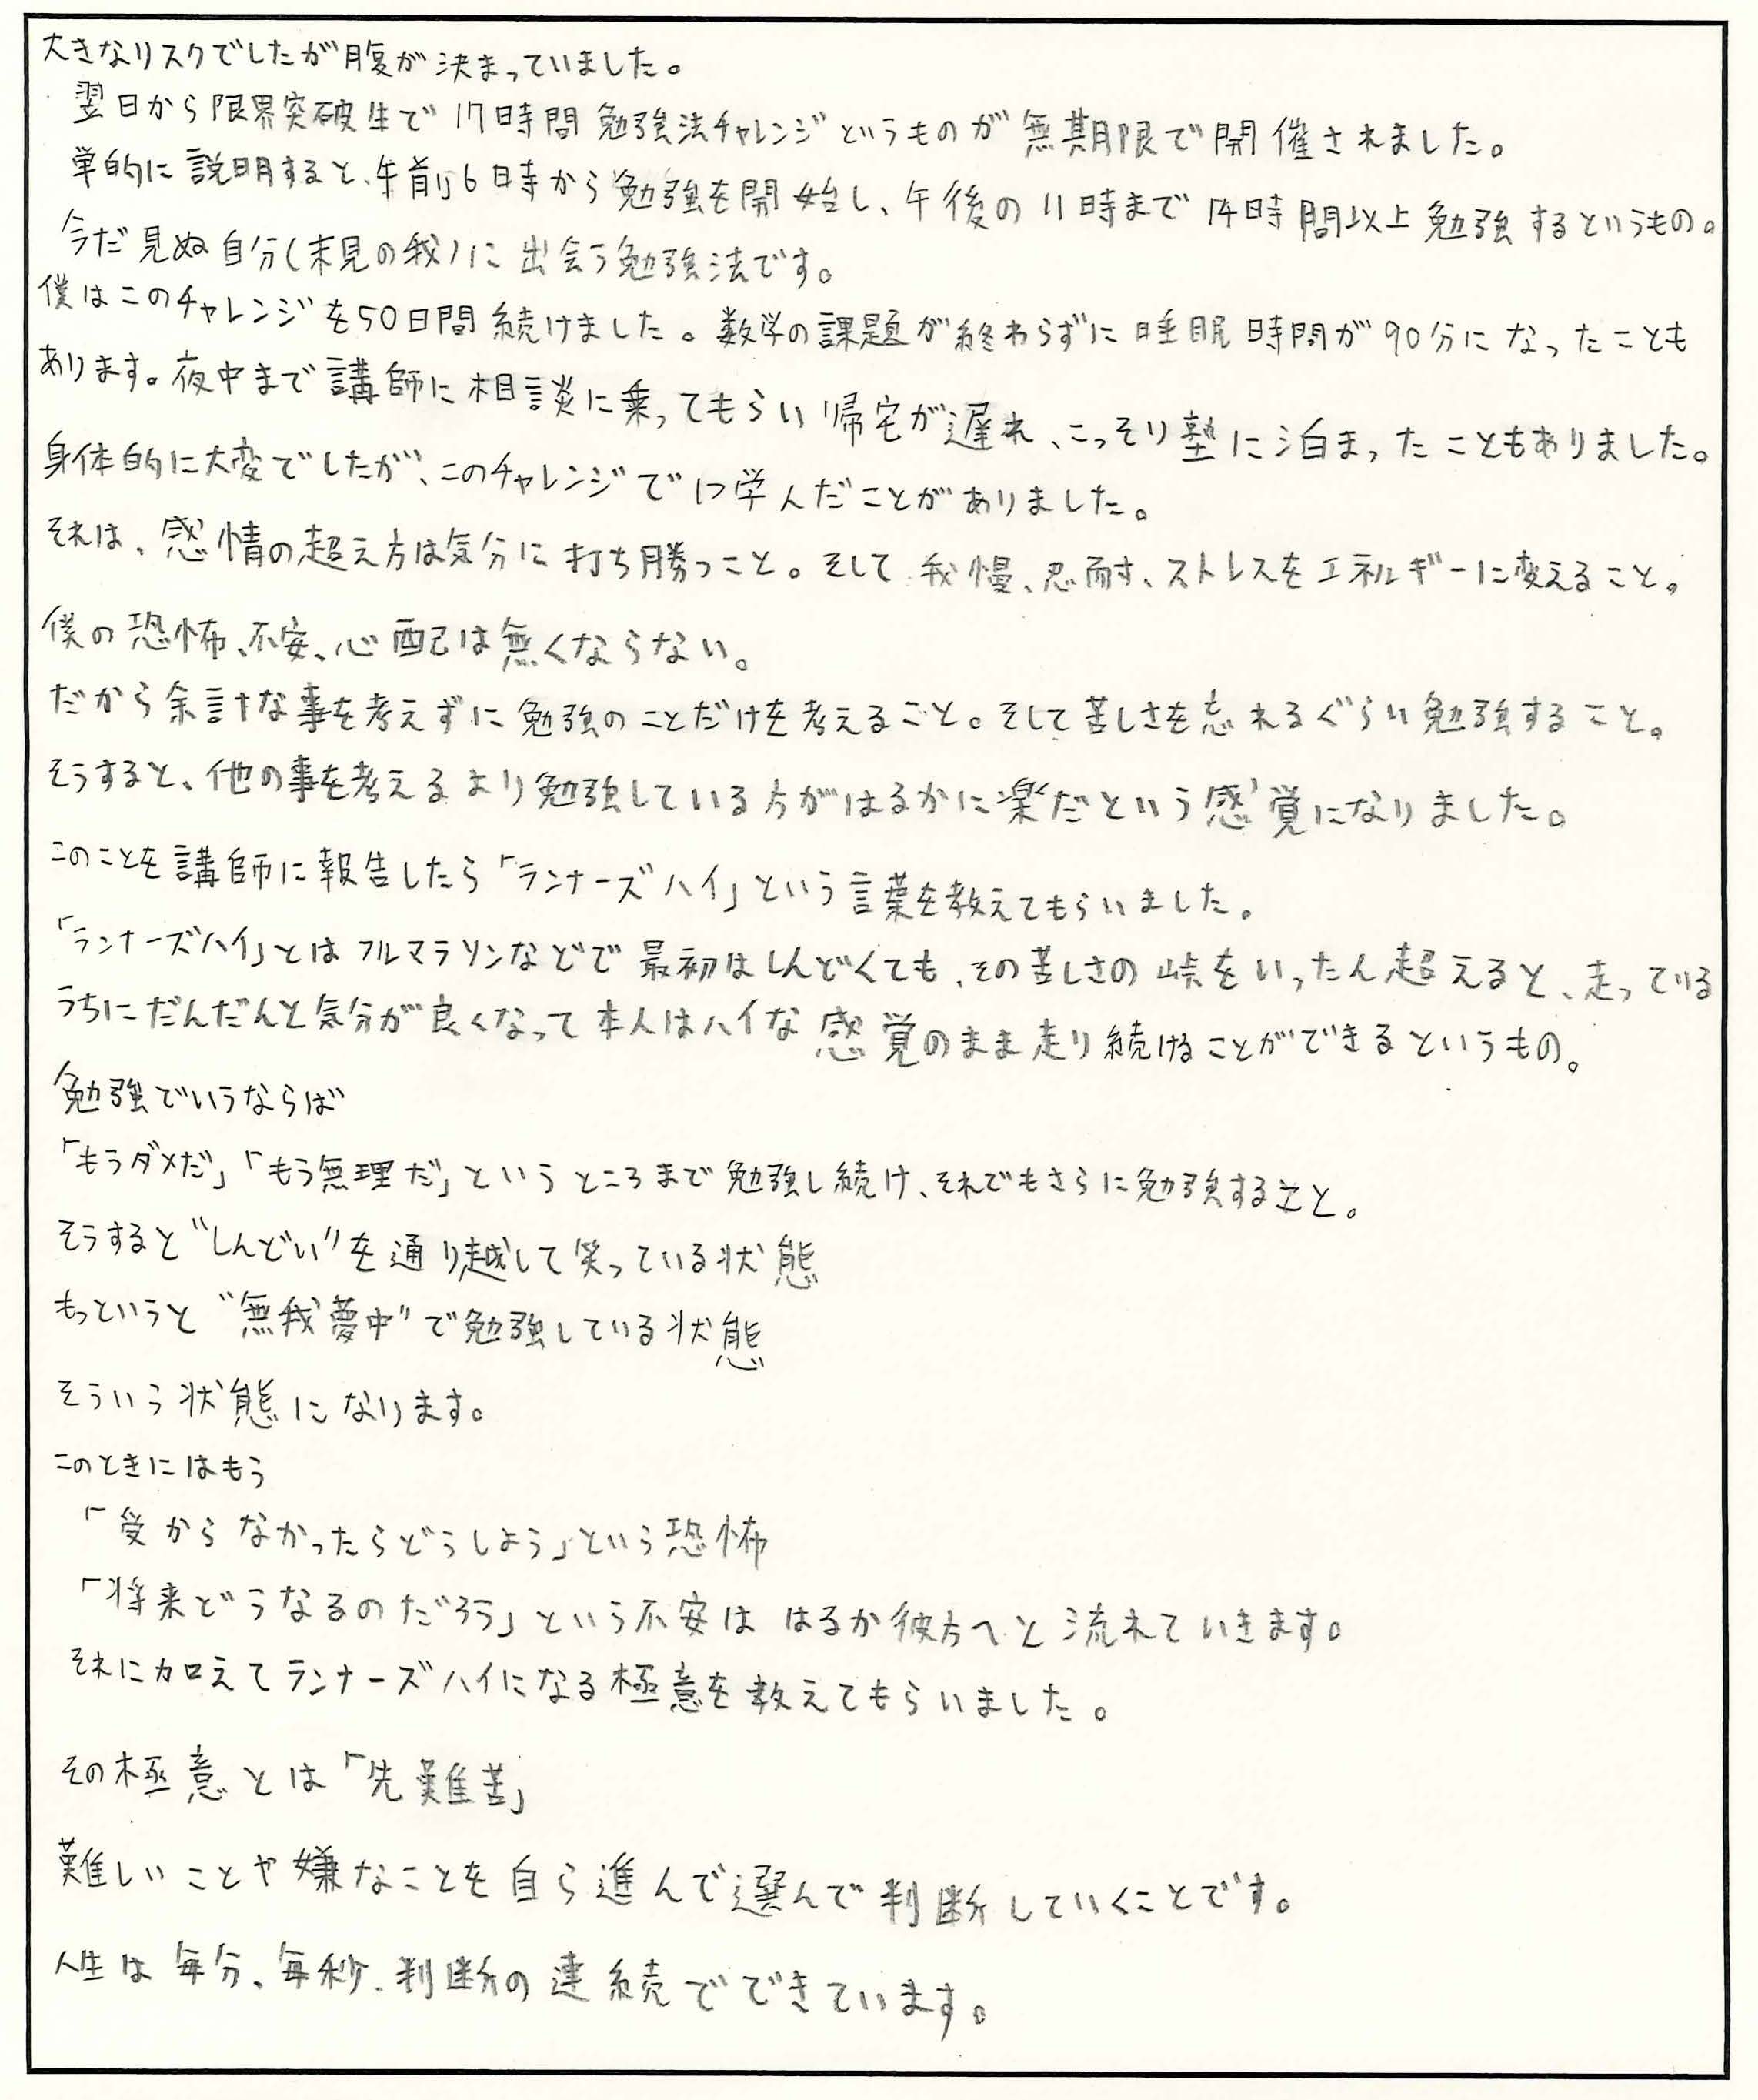 大きなリスクでしたが腹が決まっていました。
翌日から限界突破生で17時間勉強法チャレンジというものが無期限で開催されました。
単的に説明すると、午前6時から勉強を開始し、午後の11時まで14時間以上勉強するというもの。
今だ見ぬ自分(未見の我)に出会う勉強法です。
僕はこのチャレンジを50日間続けました。数学の課題が終わらずに睡眠時間が90分になったことも
あります。夜中まで講師に相談に乗ってもらい帰宅が遅れ、こっそり塾に泊まったこともありました。
身体的に大変でしたが、このチャレンジで学んだことがありました。
それは、感情の超え方は気分に打ち勝つこと。そして我慢、忍耐、ストレスをエネルギーに変えること。
僕の恐怖、不安、心配は無くならない。
だから余計な事を考えずに勉強のことだけを考えること。そして苦しさを忘れるぐらい勉強すること。
そうすると、他の事を考えるより勉強している方がはるかに楽だという感覚になりました。
このことを講師に報告したら「ランナーズハイ」という言葉を教えてもらいました。
「ランナーズハイ」とはフルマラソンなどで最初はしんどくても、その苦しさの峠をいったん超えると、走っている
うちにだんだんと気分が良くなって本人はハイな感覚のまま走り続けることができるというもの。
勉強でいうならば
「もうダメだ」「もう無理だ」というところまで勉強し続け、それでもさらに勉強すること。
そうすると“しんどい”を通り越して笑っている状態
もっというと“無我夢中”で勉強している状態
そういう状態になります。
このときにはもう
「受からなかったらどうしよう」という恐怖
「将来どうなるのだろう」という不安ははるか彼方へと流れていきます。
それに加えてランナーズハイになる極意を教えてもらいました。
その極意とは「先難苦」
難しいことや嫌なことを自ら進んで選んで判断していくことです。
人生は毎分、毎秒、判断の連続でできています。